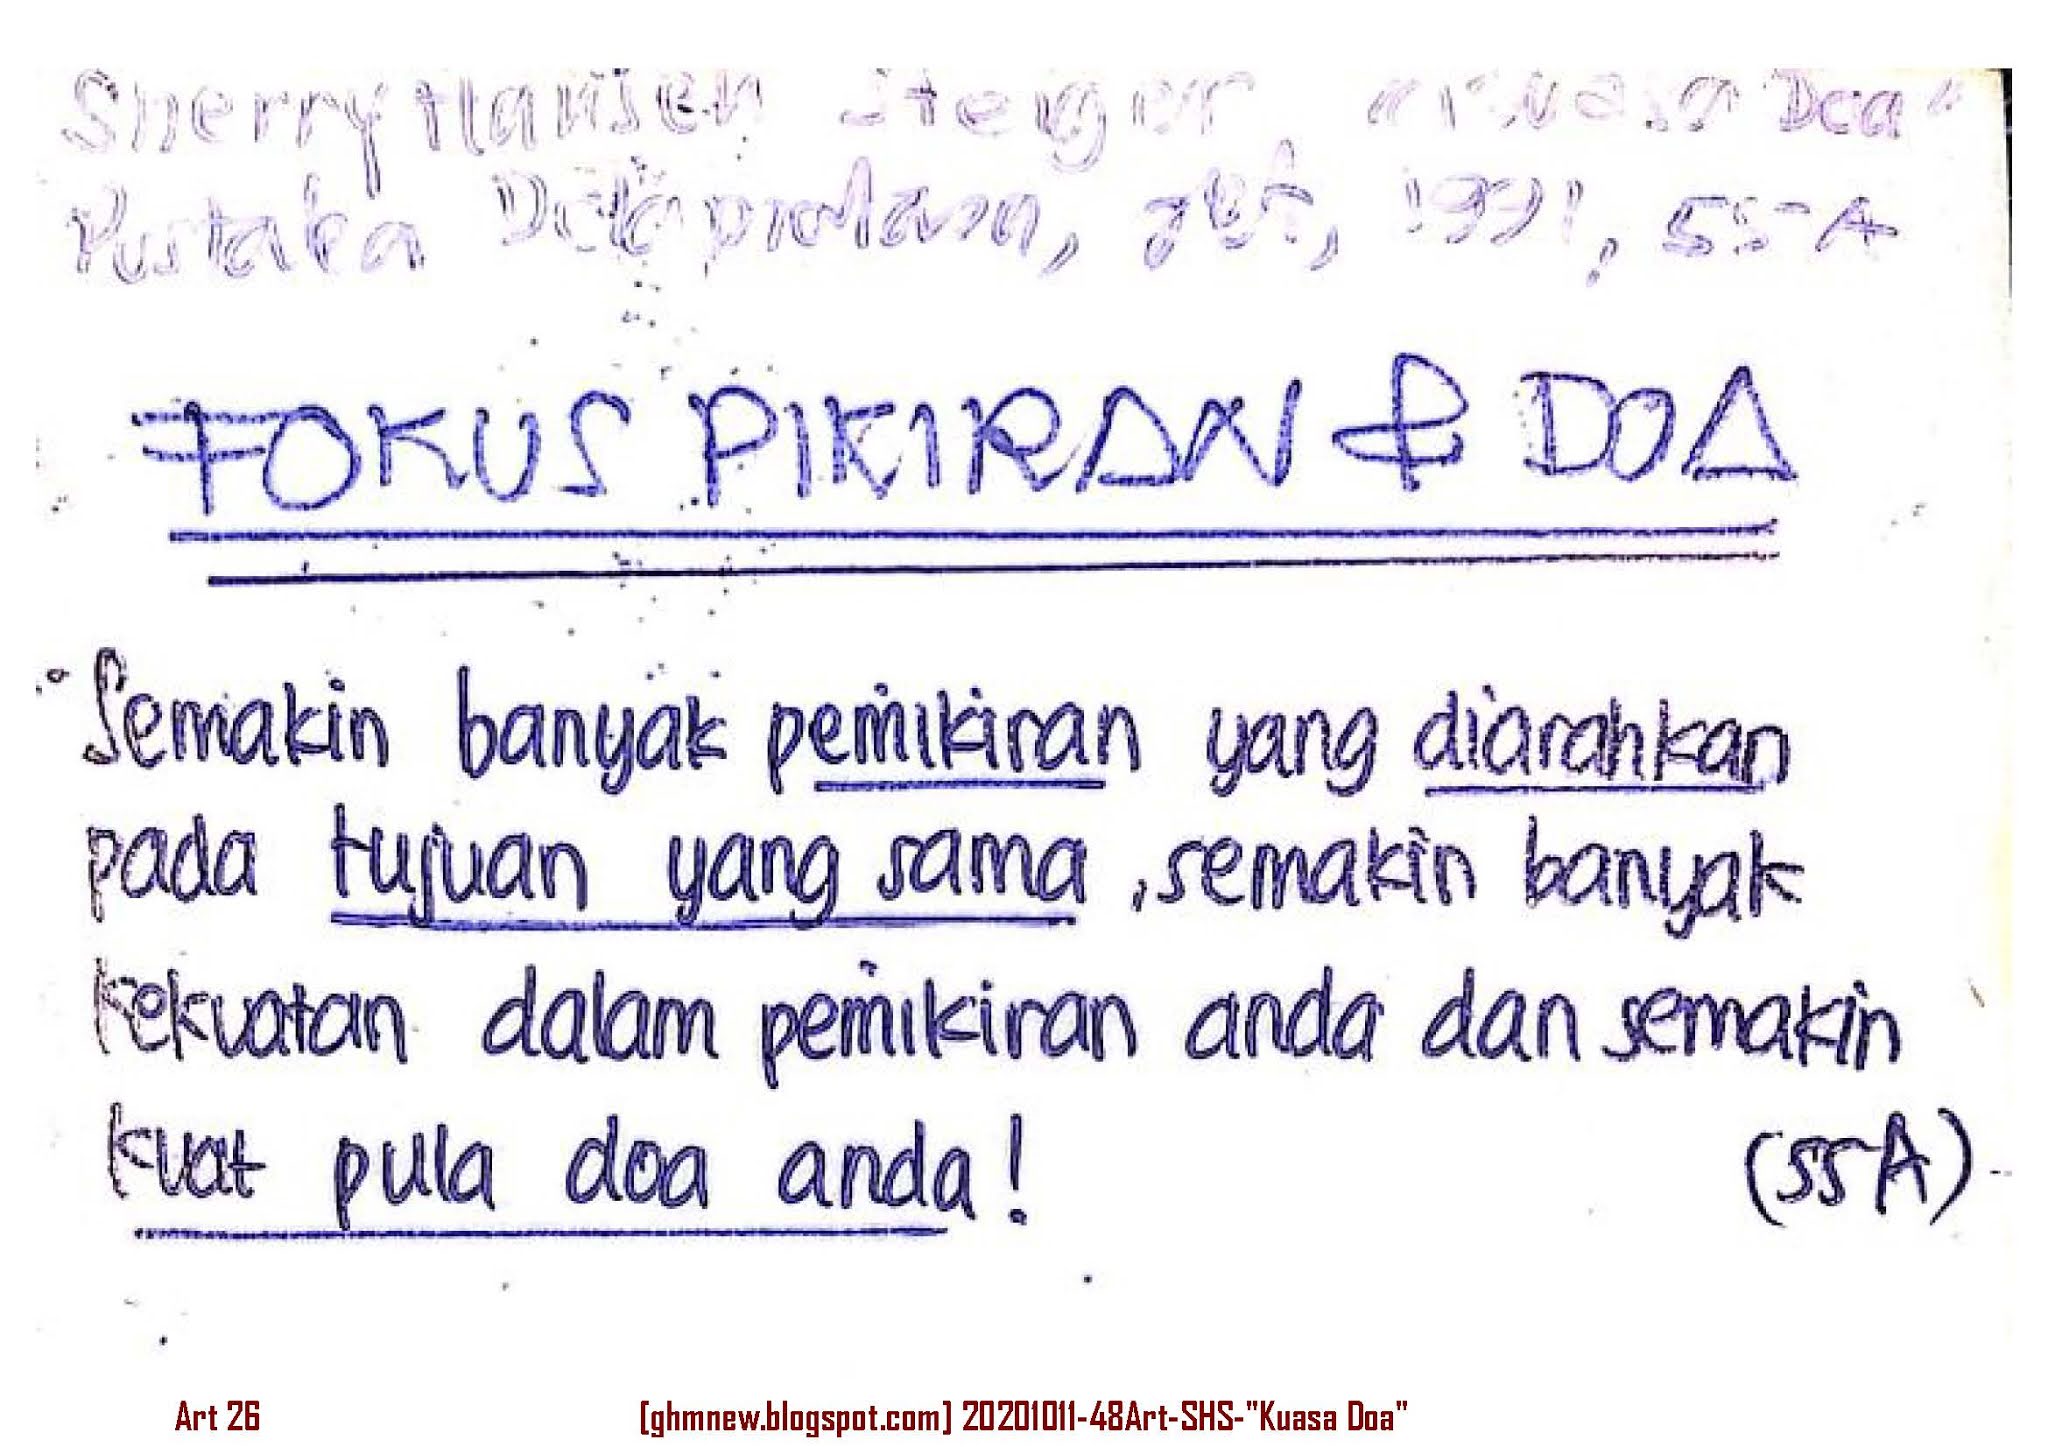 Sherry Hansen Steiger, "Kuasa Doa"
Pustaka Delapratasa, Jkt, 1991, 55-A
FOKUS PIKIRAN & DOA
Semakin banyak pemikiran yang diarahkan
pada tujuan yang sama, semakin banyak
kekuatan dalam pemikiran anda dan semakin
kuat pula doa anda!
(55A)
Art 26
[ghmnew.blogspot.com] 20201011-48Art-SHS-"Kuasa Doa"